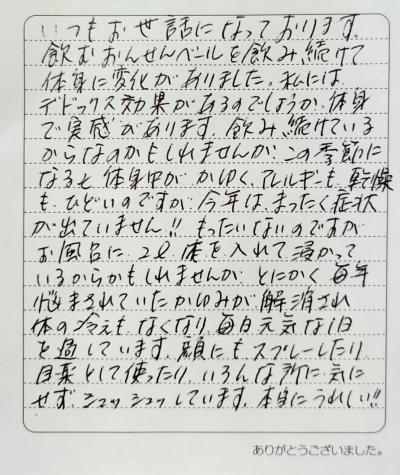 いつもお世話になっております。
飲むおんせんベールを飲み続けて
体身に変化がありました。私には、
デドックス効果があるのでしょうか、体身
で実感があります。飲み続けている
からなのかもしれませんが、この季節に
なると、体身中が かゆく、アレルギーも、乾燥
も、ひどいのですが、今年は、まったく症状
が出ていません!! もったいないのですが
お風呂に、2ℓ 使を入れて浸かって
いるからかもしれませんが、とにかく 毎年
悩まされていたかゆみが、解消され
体の冷えも、なくなり、毎日元気な1日
を過しています。顔にもスプレーしたり、
目薬として使ったり、いろんな所に気に
せず、シュッ シュッしています。本当にうれしい!!
ありがとうございました。